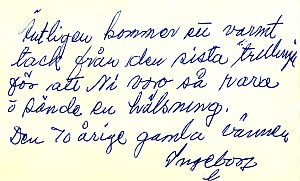 Äntligen kommer ett varmt
tack från den sista "trillingen"
för att Ni voro så rara
o sände en hälsning.
Den 70 årige gamla vännen
Ingeborg